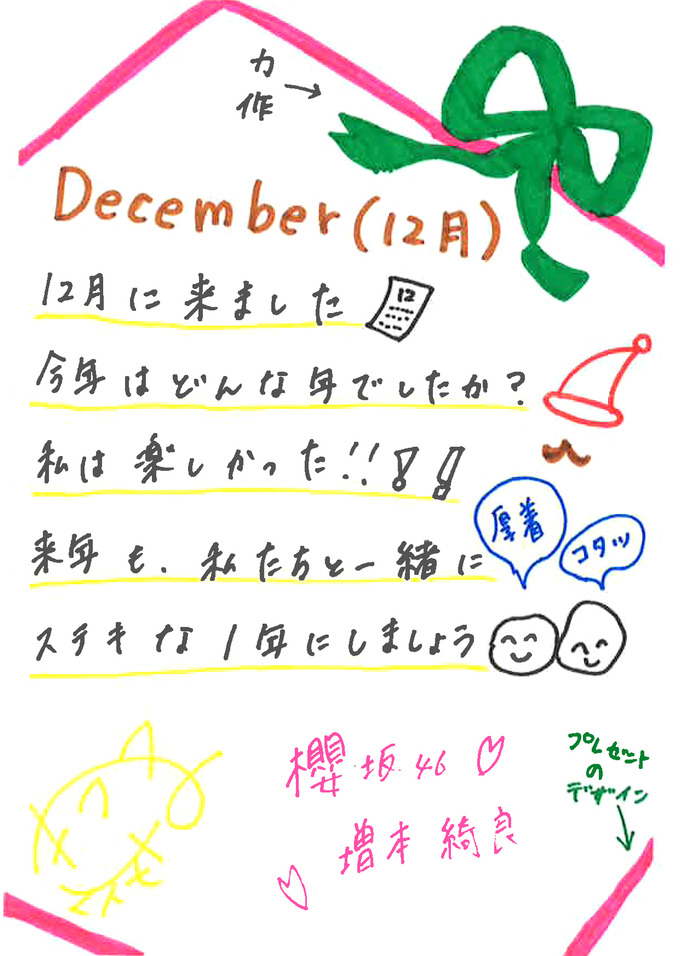 力作→
December(12月)
12月に来ました
12
今年はどんな年でしたか?
私は楽しかった!!!!
厚着
コタツ
来年も、私たちと一緒に
ステキな1年にしましょう
櫻坂46♡
増本綺良
♡
プレゼント
の
デザイン
↓